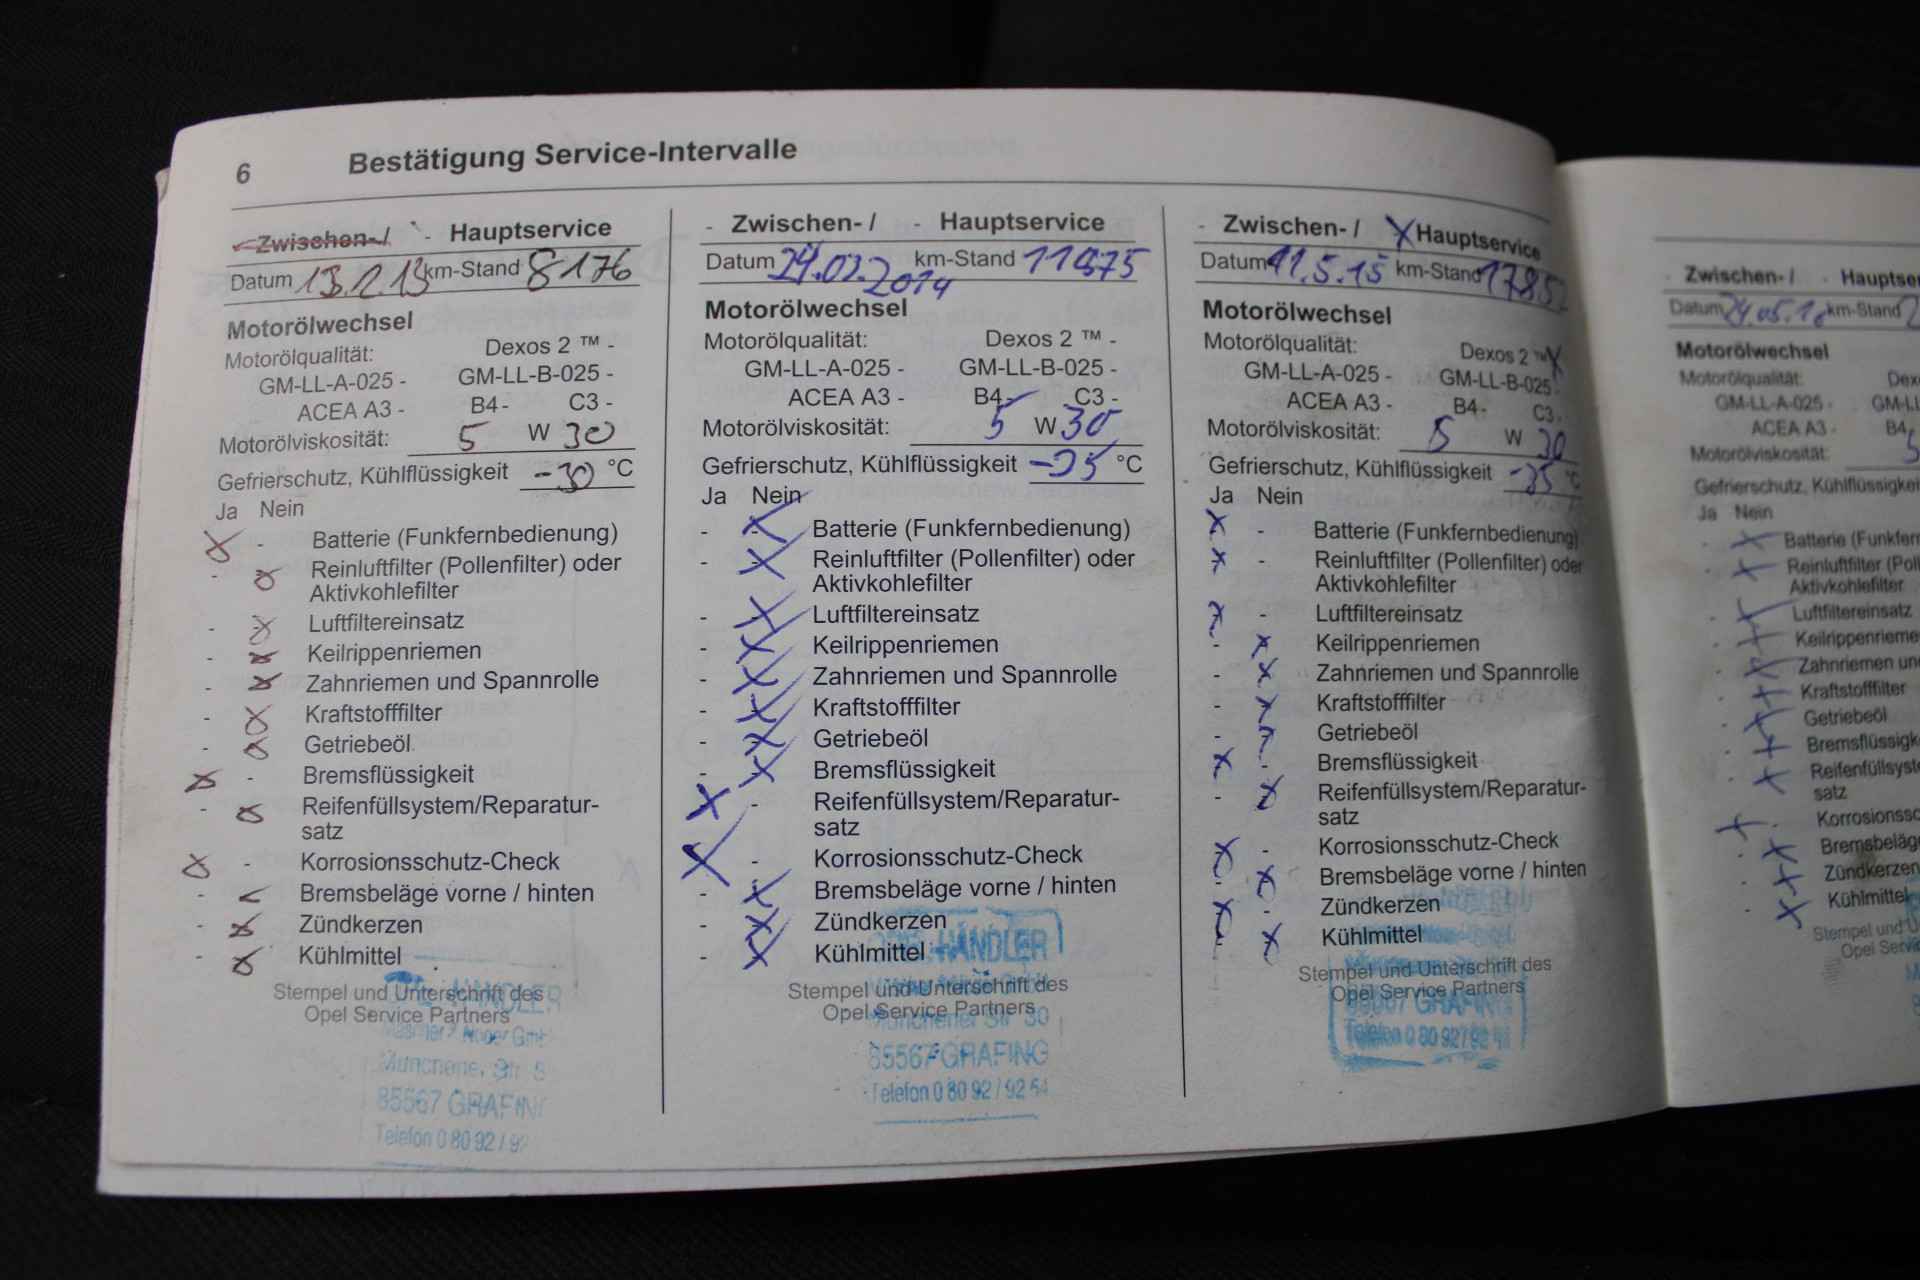 6 Bestätigung Service-Intervalle
Zwischen- / - Hauptservice
Datum 13.2.13 km-Stand 8176
Motorölwechsel
Motorölqualität: Dexos 2 ™ -
GM-LL-A-025 - GM-LL-B-025 -
ACEA A3 - B4 - C3 -
Motorölviskosität: 5 W 30
Gefrierschutz, Kühlflüssigkeit -30 °C
Ja Nein
x - Batterie (Funkfernbedienung)
- x Reinluftfilter (Pollenfilter) oder
Aktivkohlefilter
- x Luftfiltereinsatz
- x Keilrippenriemen
- x Zahnriemen und Spannrolle
- x Kraftstofffilter
- x Getriebeöl
x - Bremsflüssigkeit
- x Reifenfüllsystem/Reparatur-
satz
x - Korrosionsschutz-Check
- x Bremsbeläge vorne / hinten
- x Zündkerzen
- x Kühlmittel
Stempel und Unterschrift des
Opel Service Partners
HÄNDLER
85567 GRAFING
Telefon 0 80 92 / 92
- Zwischen- / - Hauptservice
Datum 24.02.2014 km-Stand 11875
Motorölwechsel
Motorölqualität: Dexos 2 ™ -
GM-LL-A-025 - GM-LL-B-025 -
ACEA A3 - B4 - C3 -
Motorölviskosität: 5 W 30
Gefrierschutz, Kühlflüssigkeit -35 °C
Ja Nein
- x Batterie (Funkfernbedienung)
- x Reinluftfilter (Pollenfilter) oder
Aktivkohlefilter
- x Luftfiltereinsatz
- x Keilrippenriemen
- x Zahnriemen und Spannrolle
- x Kraftstofffilter
- x Getriebeöl
- x Bremsflüssigkeit
x - Reifenfüllsystem/Reparatur-
satz
x - Korrosionsschutz-Check
- x Bremsbeläge vorne / hinten
- x Zündkerzen
- x Kühlmittel
Stempel und Unterschrift des
Opel Service Partners
HÄNDLER
Münchener Str 30
85567 GRAFING
Telefon 0 80 92 / 92 64
- Zwischen- / x Hauptservice
Datum 11.5.15 km-Stand 17852
Motorölwechsel
Motorölqualität: Dexos 2 ™ x
GM-LL-A-025 - GM-LL-B-025 -
ACEA A3 - B4 - C3 -
Motorölviskosität: 5 W 30
Gefrierschutz, Kühlflüssigkeit -35 °C
Ja Nein
x - Batterie (Funkfernbedienung)
x - Reinluftfilter (Pollenfilter) oder
Aktivkohlefilter
x - Luftfiltereinsatz
- x Keilrippenriemen
- x Zahnriemen und Spannrolle
- x Kraftstofffilter
- x Getriebeöl
x - Bremsflüssigkeit
- x Reifenfüllsystem/Reparatur-
satz
x - Korrosionsschutz-Check
- x Bremsbeläge vorne / hinten
x - Zündkerzen
- x Kühlmittel
Stempel und Unterschrift des
Opel Service Partners
85567 GRAFING
Telefon 0 80 92 / 92
Zwischen- / - Hauptser
Datum km-Stand 2
Motorölwechsel
Motorölqualität: Dex
GM-LL-A-025 - GM-L
ACEA A3 - B4
Motorölviskosität: 5
Gefrierschutz, Kühlflüssigkei
Ja Nein
- x Batterie (Funkfern
- x Reinluftfilter (Poll
Aktivkohlefilter
- x Luftfiltereinsatz
- x Keilrippenrieme
- x Zahnriemen un
- x Kraftstofffilter
- x Getriebeöl
- x Bremsflüssigk
- x Reifenfüllsyst
satz
x - Korrosionssc
- x Bremsbeläg
- x Zündkerzen
- x Kühlmittel
Stempel und U
Opel Servi